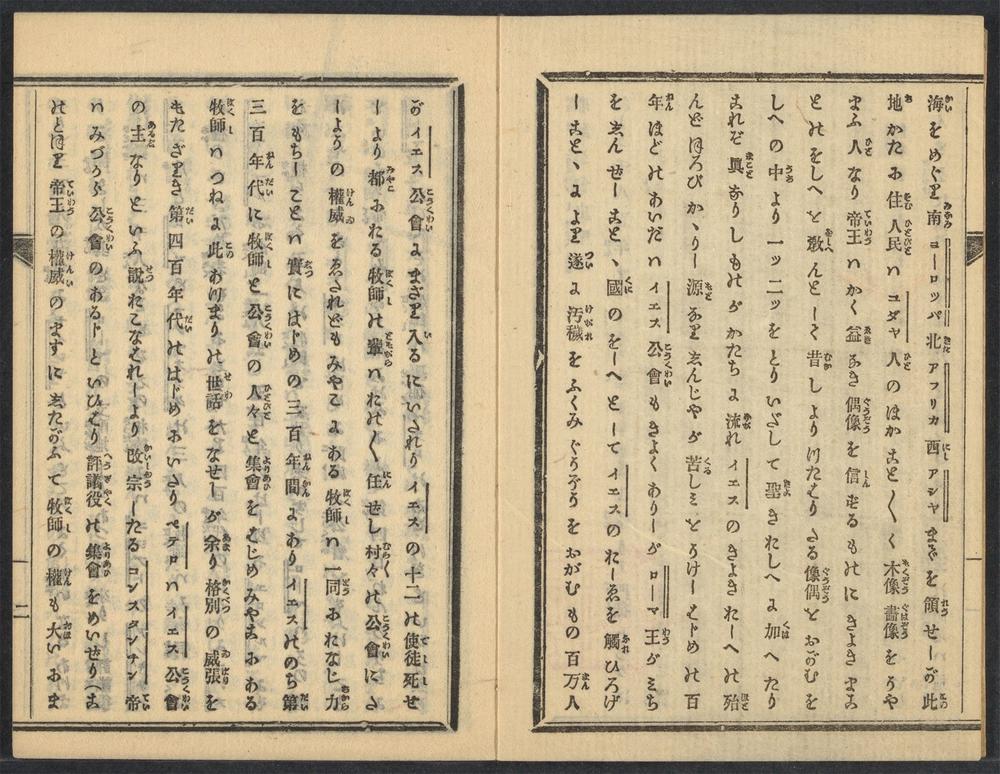 海をめぐり南ヨーロッパ北アフリカ西アジヤまでを領せしが此
地かたに住人民ハユダヤ人のほかことごとく木像畫像をうや
まふ人なり帝王ハかく益なき偶像を信ずるものにきよきまこ
とのをしへを敎んとして昔しよりけたもりたる像偶をおがむを
しへの中より一ッ二ッをとりいだして聖きおしへに加へたり
これぞ興なりしものがかたちに流れイエスのきよきおしへの殆
んどほろびかゝりし源なりゑんじやが苦しミをうけしはじめの百
年ほどのあいだハイエス公會もきよくありしがローマ王がミち
をゑんせしこと、國のをしへとしてイエスのおしゑを觸ひろげ
しこと、により遂に汚穢をふくみぐうぞうをおがむもの百万人
がイエス公會にまざり入るにいたれりイエスの十二の使徒死せ
しより都にたる牧師の輩ハおのおの任せし村々の公會にた
しよりの權威をゑたれどもみやこにある牧師ハ一同おなじ力
をもちしことハ實にはじめの三百年間にありイエスののち第
三百年代に牧師と公會の人々と集會をはじめみやこにある
牧師ハつねに此あつまりの世話をなせしが余り格別の威張を
もたざりき第四百年代のはじめにいたりペテロハイエス公會
の主なりといふ説おこなはれしより改宗したるコンスタンチン帝
ハみづから公會のあるじといひはり評議役の集會をめいぜり(こ
のとほり帝王の權威のますにしたがふて牧師の權も大いにま
二